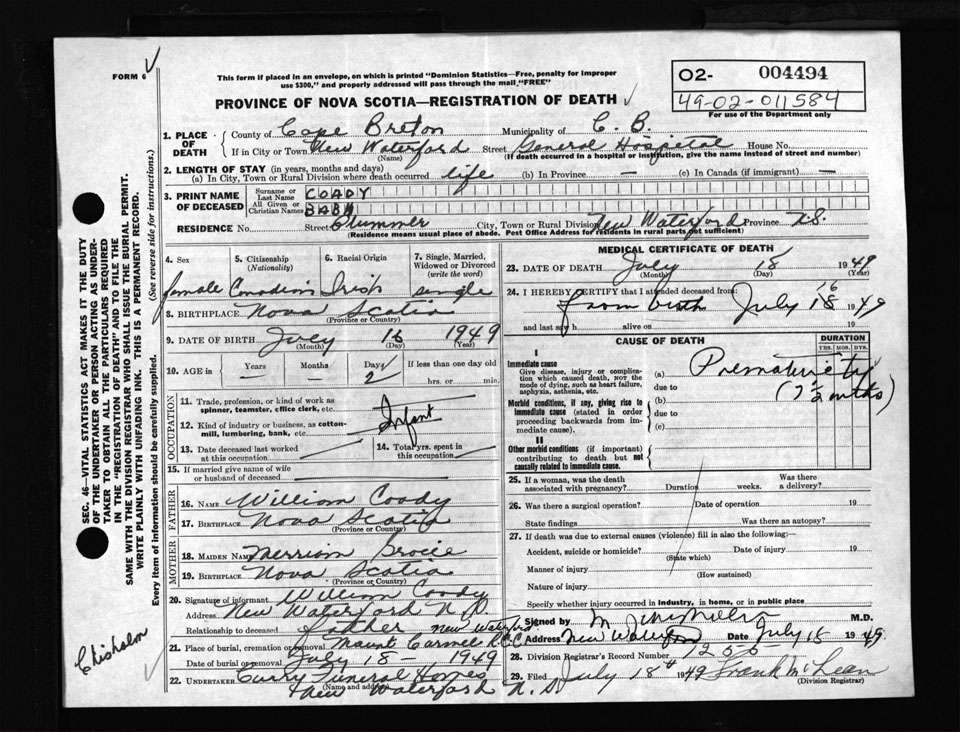 FORM 6
This form if placed in an envelope, on which is printed "Dominion Statistics—Free, penalty for improper
use $300," and properly addressed will pass through the mail "FREE"
PROVINCE OF NOVA SCOTIA—REGISTRATION OF DEATH
O2- 004494
49-02-011584
For use of the Department only
1. PLACE OF DEATH
County of Cape Breton Municipality of C. B.
If in City or Town New Waterford Street General Hospital House No.
(Name) (If death occurred in a hospital or institution, give the name instead of street and number)
2. LENGTH OF STAY (in years, months and days)
(a) In City, Town or Rural Division where death occurred life (b) In Province — (c) In Canada (if immigrant) —
3. PRINT NAME OF DECEASED
Surname or Last Name COADY
All Given or Christian Names BABY
RESIDENCE No. Street Plummer City, Town or Rural Division New Waterford Province N.S.
(Residence means usual place of abode. Post Office Address for residents in rural parts not sufficient)
4. Sex 5. Citizenship (Nationality) 6. Racial Origin 7. Single, Married, Widowed or Divorced (write the word)
female Canadian Irish single
8. BIRTHPLACE Nova Scotia
(Province or Country)
9. DATE OF BIRTH July 16 1949
(Month) (Day) (Year)
10. AGE in Years Months Days If less than one day old
— — 2 hrs. or min.
OCCUPATION
11. Trade, profession, or kind of work as spinner, teamster, office clerk, etc.
Infant
12. Kind of industry or business, as cotton-mill, lumbering, bank, etc.
13. Date deceased last worked at this occupation 14. Total yrs. spent in this occupation
15. If married give name of wife or husband of deceased
FATHER
16. NAME William Coady
17. BIRTHPLACE Nova Scotia
(Province or Country)
MOTHER
18. MAIDEN NAME
19. BIRTHPLACE Nova Scotia
(Province or Country)
20. Signature of informant William Coady
Address New Waterford N.S.
Relationship to deceased father New Waterford
21. Place of burial, cremation or removal Mount Carmel R.C.C.
Date of burial or removal July 18 — 1949
22. UNDERTAKER Curry Funeral Homes
(Name and address)
New Waterford N.S.
MEDICAL CERTIFICATE OF DEATH
23. DATE OF DEATH July 18 1949
(Month) (Day) (Year)
24. I HEREBY CERTIFY that I attended deceased from:
from birth July 16 18 1949
and last saw h alive on 19
CAUSE OF DEATH DURATION
YRS. MOS. DYS.
I
Immediate cause
Give disease, injury or complication which caused death, NOT the mode of dying, such as heart failure, asphyxia, asthenia, etc.
(a) Prematurity
due to
(7 1/2 mths)
Morbid conditions, if any, giving rise to immediate cause (stated in order proceeding backwards from immediate cause).
(b)
due to
(c)
II
Other morbid conditions (if important) contributing to death but not causally related to immediate cause.
25. If a woman, was the death associated with pregnancy? Duration weeks. Was there a delivery?
26. Was there a surgical operation? Date of operation 19
State findings Was there an autopsy?
27. If death was due to external causes (violence) fill in also the following:—
Accident, suicide or homicide? Date of injury 19
(State which)
Manner of injury
(How sustained)
Nature of injury
Specify whether injury occurred in industry, in home, or in public place
Signed by M.D.
Address New Waterford Date July 18 1949
28. Division Registrar's Record Number
29. Filed July 18th 1949 Frank McLean
(Division Registrar)
SEC. 46—VITAL STATISTICS ACT MAKES IT THE DUTY
OF THE UNDERTAKER OR PERSON ACTING AS UNDER-
TAKER TO OBTAIN ALL THE PARTICULARS REQUIRED
IN THE "REGISTRATION OF DEATH" AND TO FILE THE
SAME WITH THE DIVISION REGISTRAR WHO SHALL ISSUE THE BURIAL PERMIT.
WRITE PLAINLY WITH UNFADING INK. THIS IS A PERMANENT RECORD.
Every item of information should be carefully supplied. (See reverse side for instructions.)
Chisholm